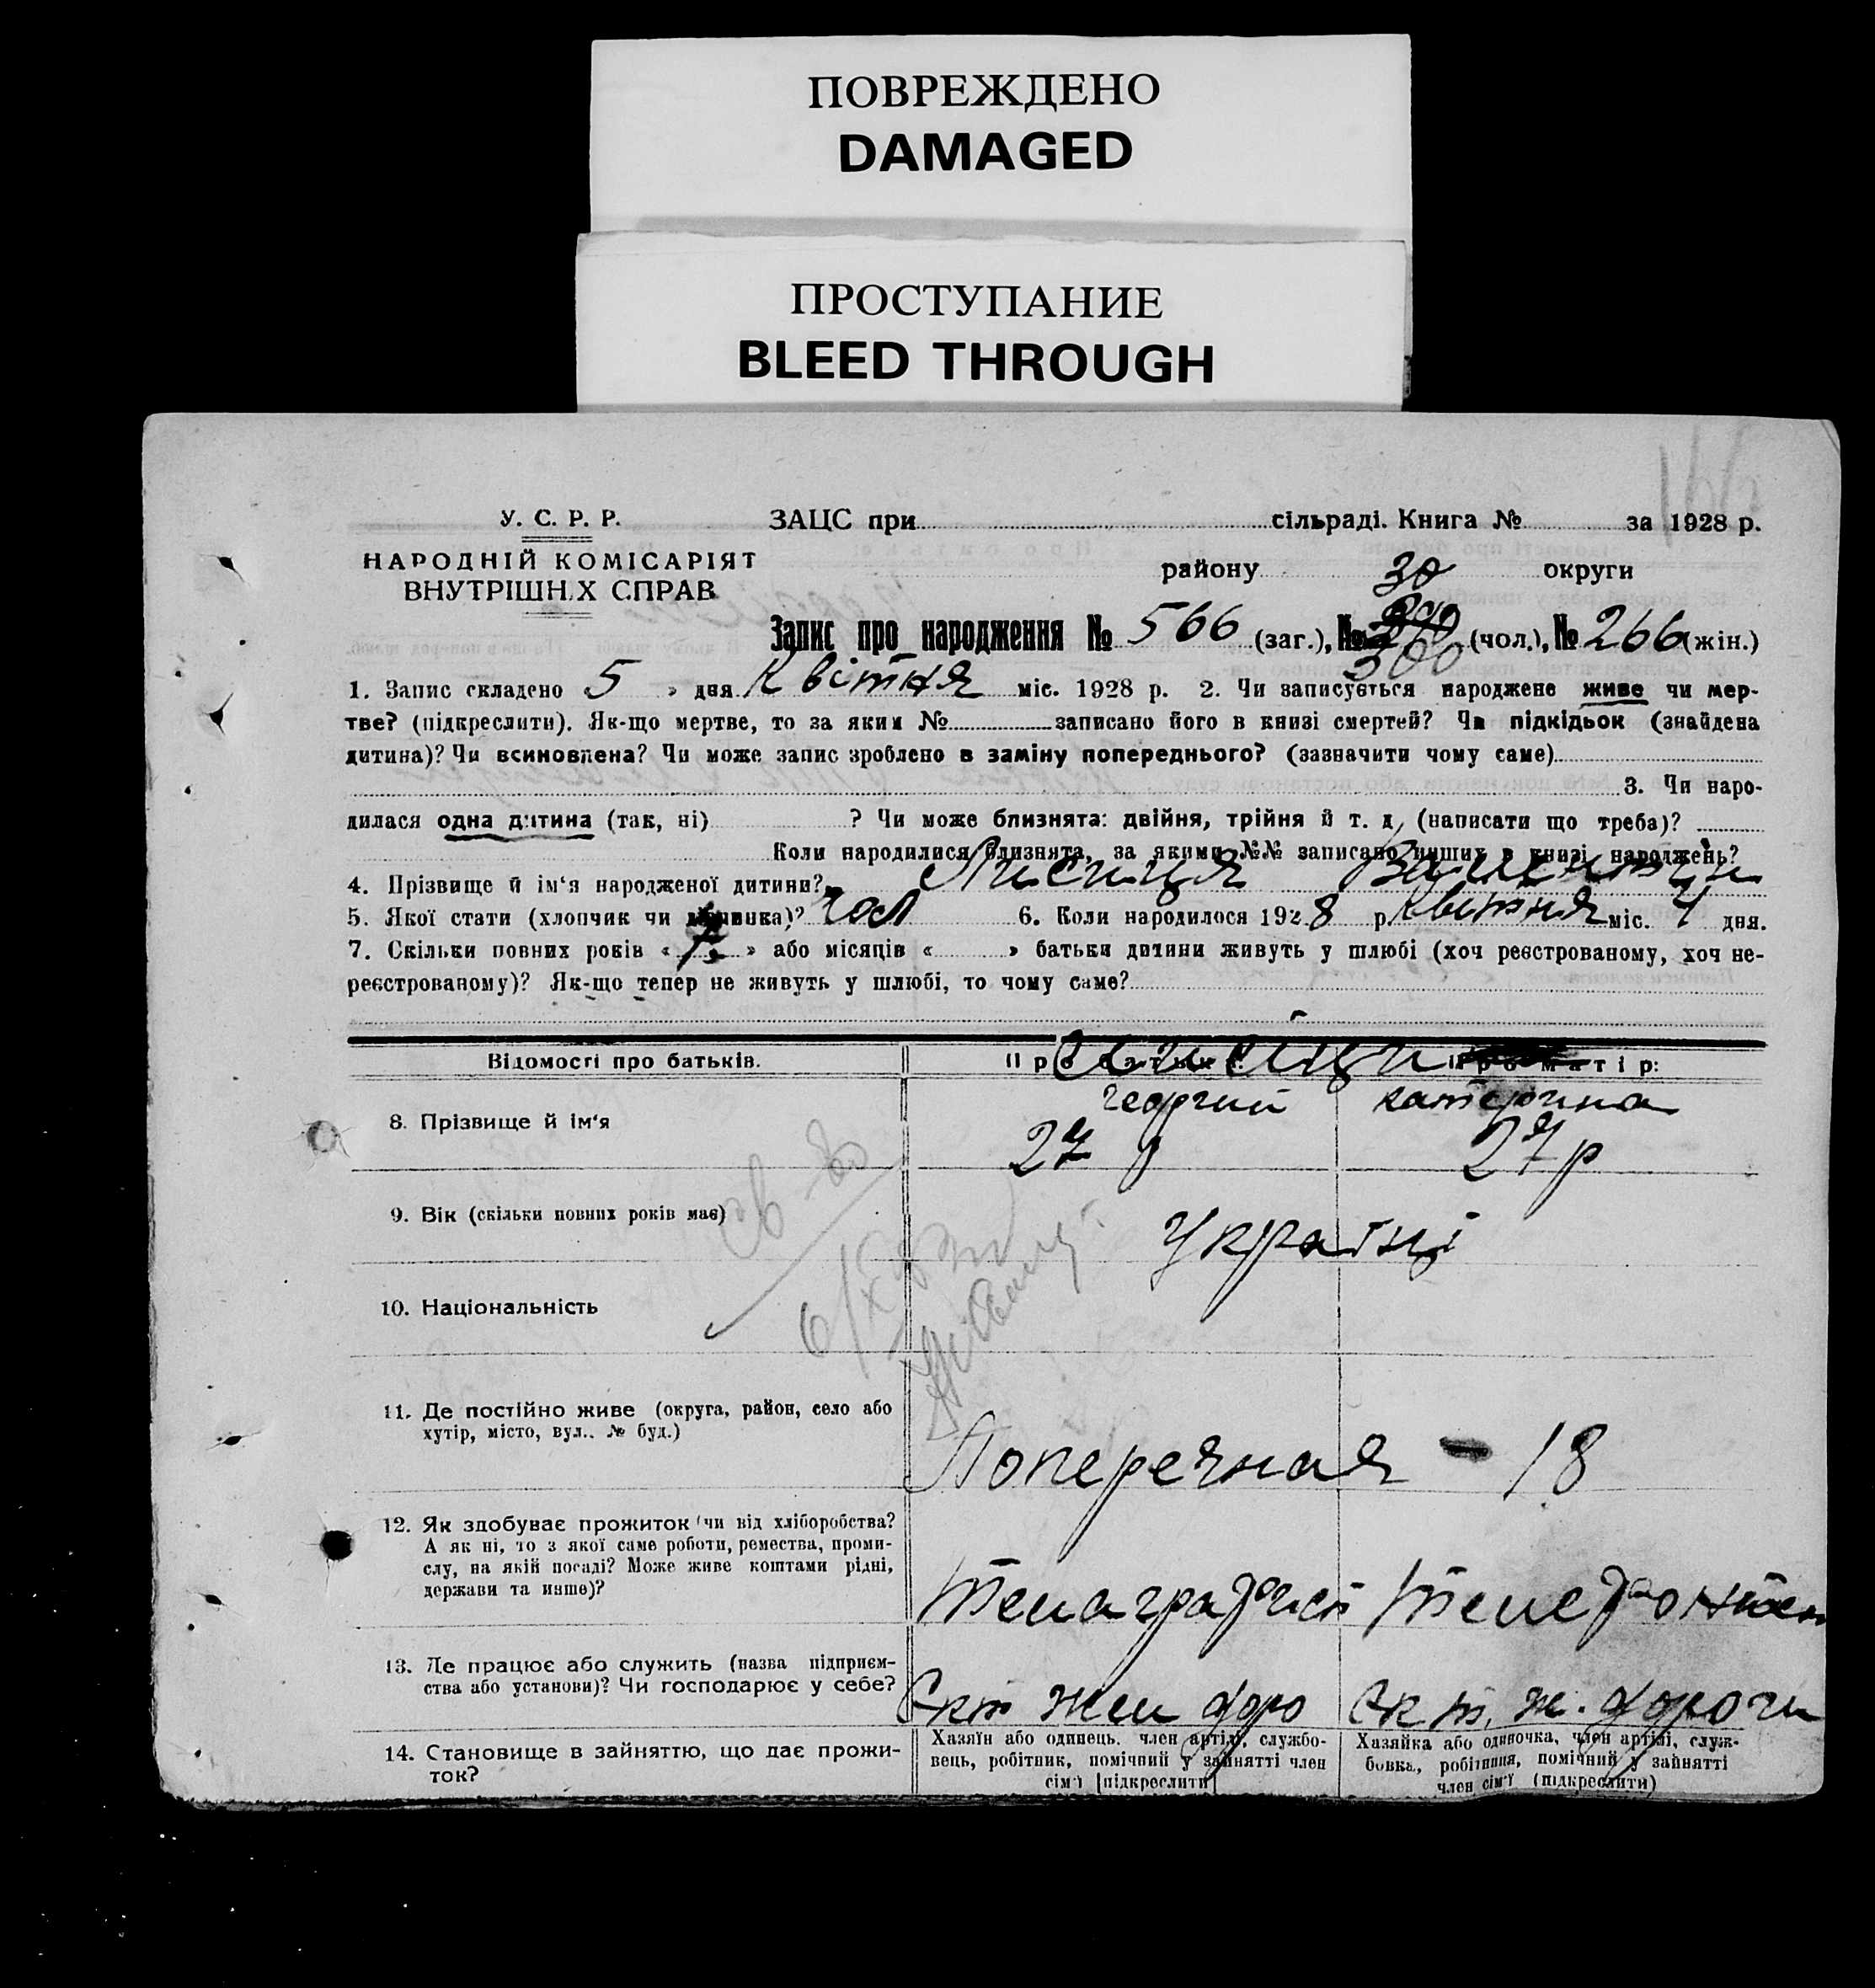 ПОВРЕЖДЕНО
DAMAGED
ПРОСТУПАНИЕ
BLEED THROUGH
У. С. Р. Р.
НАРОДНІЙ КОМІСАРІЯТ
ВНУТРІШН.Х СПРАВ
ЗАЦС при сільраді. Книга № за 1928 р.
району округи
30
Запис про народження № 566 (заг.), № 300 (чол.), № 266 (жін.)
1. Запис складено 5 » дня Квітня міс. 1928 р. 2. Чи записується народжене живе чи мер-
тве? (підкреслити). Як-що мертве, то за яким № записано його в книзі смертей? Чи підкідьок (знайдена
дитина)? Чи всиновлена? Чи може запис зроблено в заміну попереднього? (зазначити чому саме)
3. Чи наро-
дилася одна дитина (так, ні) ? Чи може близнята: двійня, трійня й т. д, (написати що треба)?
Коли народилися близнята, за якими №№ записано инших в книзі народжень?
4. Прізвище й ім‘я народженої дитини? Лисиця Валентин
5. Якої стати (хлопчик чи дівчинка)? чол 6. Коли народилося 1928 р. Квітня міс. 4 дня.
7. Скільки повних років « 7 » або місяців « » батьки дитини живуть у шлюбі (хоч реєстрованому, хоч не-
реєстрованому)? Як-що тепер не живуть у шлюбі, то чому саме?
Відомості про батьків. Про батька: Про матір:
Лисиця
8. Прізвище й ім‘я Георгий Катерина
27 р 27 р
9. Вік (скільки повних років має)
Українці
10. Національність
11. Де постійно живе (округа, район, село або
хутір, місто, вул.. № буд.)
Поперечная - 18
12. Як здобуває прожиток (чи від хліборобства?
А як ні, то з якої саме роботи, ремества, проми-
слу, на якій посаді? Може живе коштами рідні,
держави та инше)?
Телаграфист Телефонист
13. Де працює або служить (назва підприєм-
ства або установи)? Чи господарює у себе?
Єкт Жел доро Єк т. ж. дороги
14. Становище в зайняттю, що дає прожи-
ток?
Хазяїн або одинець, член артілі, службо-
вець, робітник, помічний у зайнятті член
сім‘ї [підкреслити]
Хазяйка або одиночка, член артілі, служ-
бовка, робітниця, помічний у зайнятті
член сім‘ї (підкреслити)